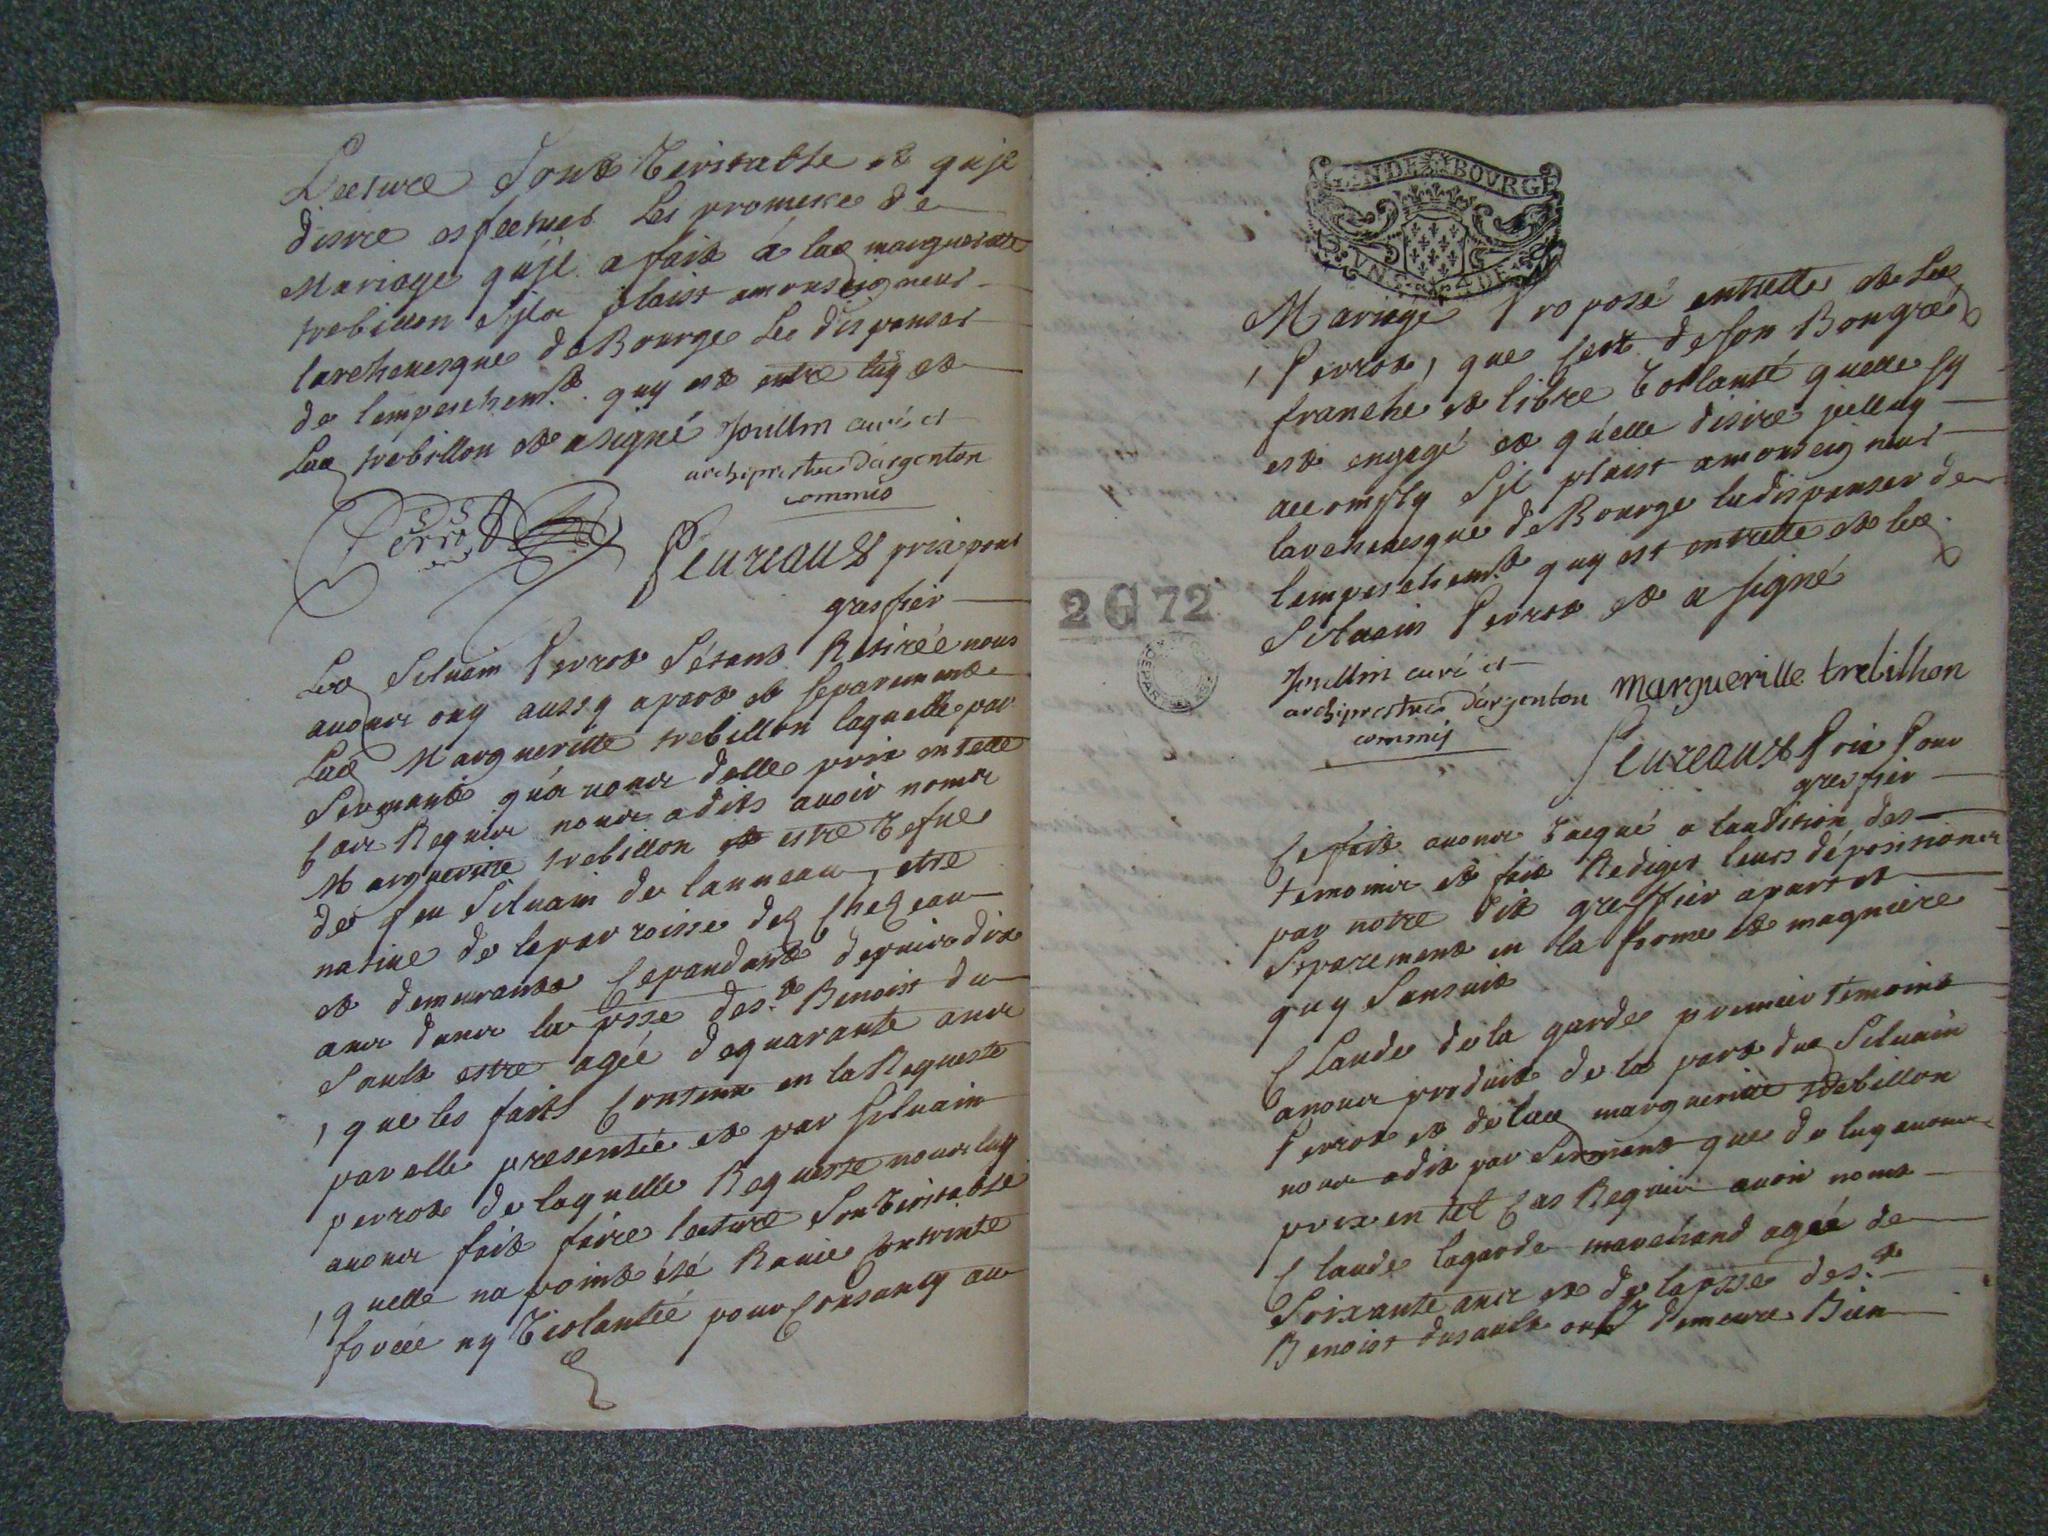 Lecture sont veritable et qu'jl
disire esfectuer Les promesse de
Mariage qu'jl a fait á lad margueritte
trebillon s'jla plaist amonseigneur
larchevesque de Bourge Le dispenser
de lempeschemt. quy est entre luy et
Lad trebillon et a signé Joullin curé et
archiprestre d'argenton
commis
Perrot
Peureaux pris pour
gresfier
Led Siluain Perrot s'étant Retirée nous
auons ouy aussy apart et separement
Lad Margueritte trebillon laquelle par
Serment qu'a nous delle pris en telle
Cas Requis nous a dits avoir nome
Margueritte trebillon et estre vefue
de feu Siluain de lanneau, etre
natiue de leparroisse des Chezeau
et demeurante Cependant depuis dix
ans dans la psse des.t Benoist du
Sault estre agée de quarante ans
, que les faits Contenu en la Requeste
par elle presentée et par Siluain
perrot de laquelle Requeste nous luy
auons fait faire lecture Son veritable
, quelle na point été Rauie Contrinte
forcée ny violantée pour Consanty au
GEN DE BOVRGE
2 G 72
Mariage Proposé entrelle et Led
, Perrot, que Cest de son Bongré
franche et libre vollanté quelle sy
est engagé et qu'elle disire jcelluy
accomply s'jl plaist amonseigneur
larchevesque de Bourge ladispanser de
lempeschemt. quy est entrelle et led
Siluain Perrot et a signé
Joullin curé et
archiprestre d'argenton
commis
Marguerille trebilhon
Peureaux Pris Pour
gresfier
Ce fait auons vacqué a laudision des
temoins et fait Rediger leurs dépositions
par notre dit greffier apart et
Separement en la forme et magniere
quy Sansuit
Claude de la garde premier temoint
anous produit de la part dud Siluain
Perrot et de lad margueritte trebillon
nous adit par Serment que de luy auons
prix en tel Cas Requis auoir nome
Claude lagarde marchand agée de
Soixante ans et de lapsse des.t
Benoist dusault ouIl demeure Bien